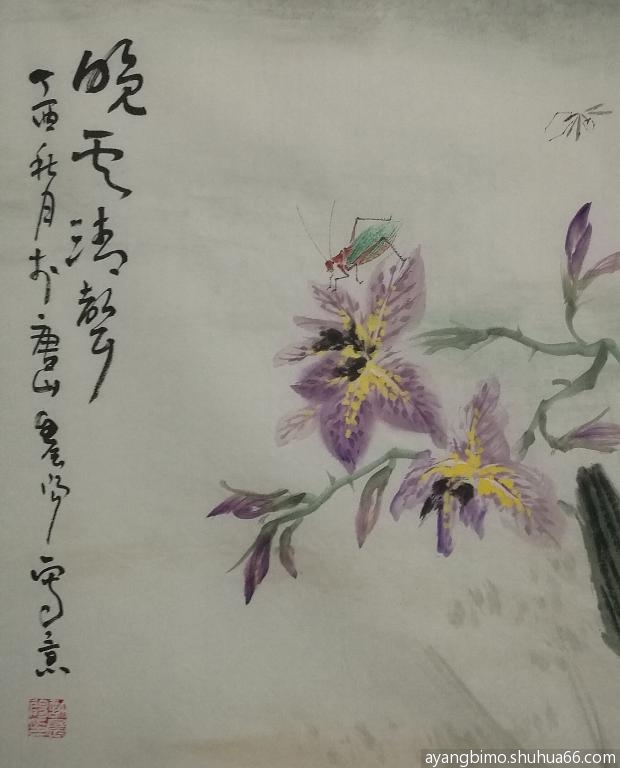 晚云清聲
丁酉秋月於唐山 寫意
ayangbimo.shuhua66.com